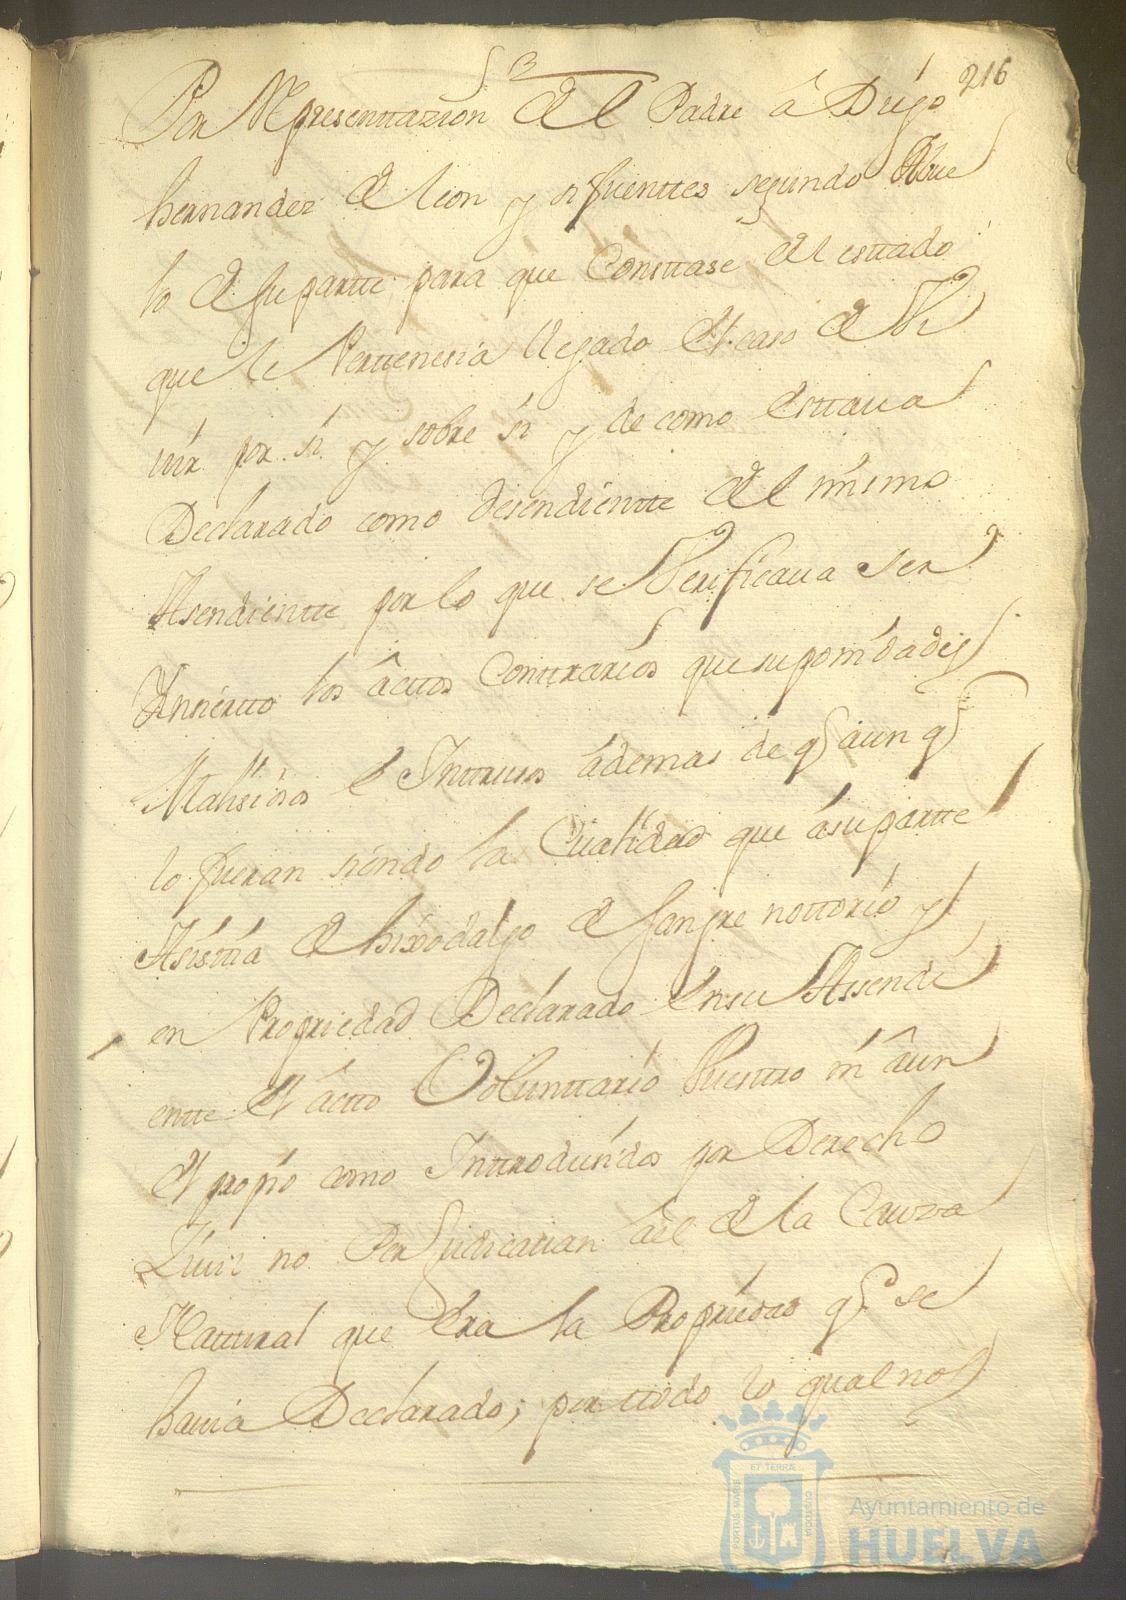 3
216
Por Representtazion de el Padre â Diego
hernandez de leon y sifuenttes segundo Abue
lo de su partte para que Consttase del esttado
que le Perttenesia llegado el caso de Vi
uir por si y sobre si y de como esttaua
Declarado como desendientte del mismo
Asendientte por lo que se Verificaua ser
Ynsiertto los âcttos Contrarios que suponidadis
Malisiosos e Inttrusos âdemas de q aun q
lo fueran siendo la Cualidad que âsu partte
Asisttia de hixodalgo de sangre nottorio y
en Propriedad Declarado en su Assendi
entte el âctto Voluntario Vuesttro ni âun
el propio como Inttroduсidos por Derecho
Ciuil no Perjudicauan ael de la Cauza
Nattural que era la Propriedad q se
hauia Declarado; por ttodo lo qual nos
PORTUS MARIS
ET TERRÆ
CUSTODIA
Ayuntamiento de
HUELVA